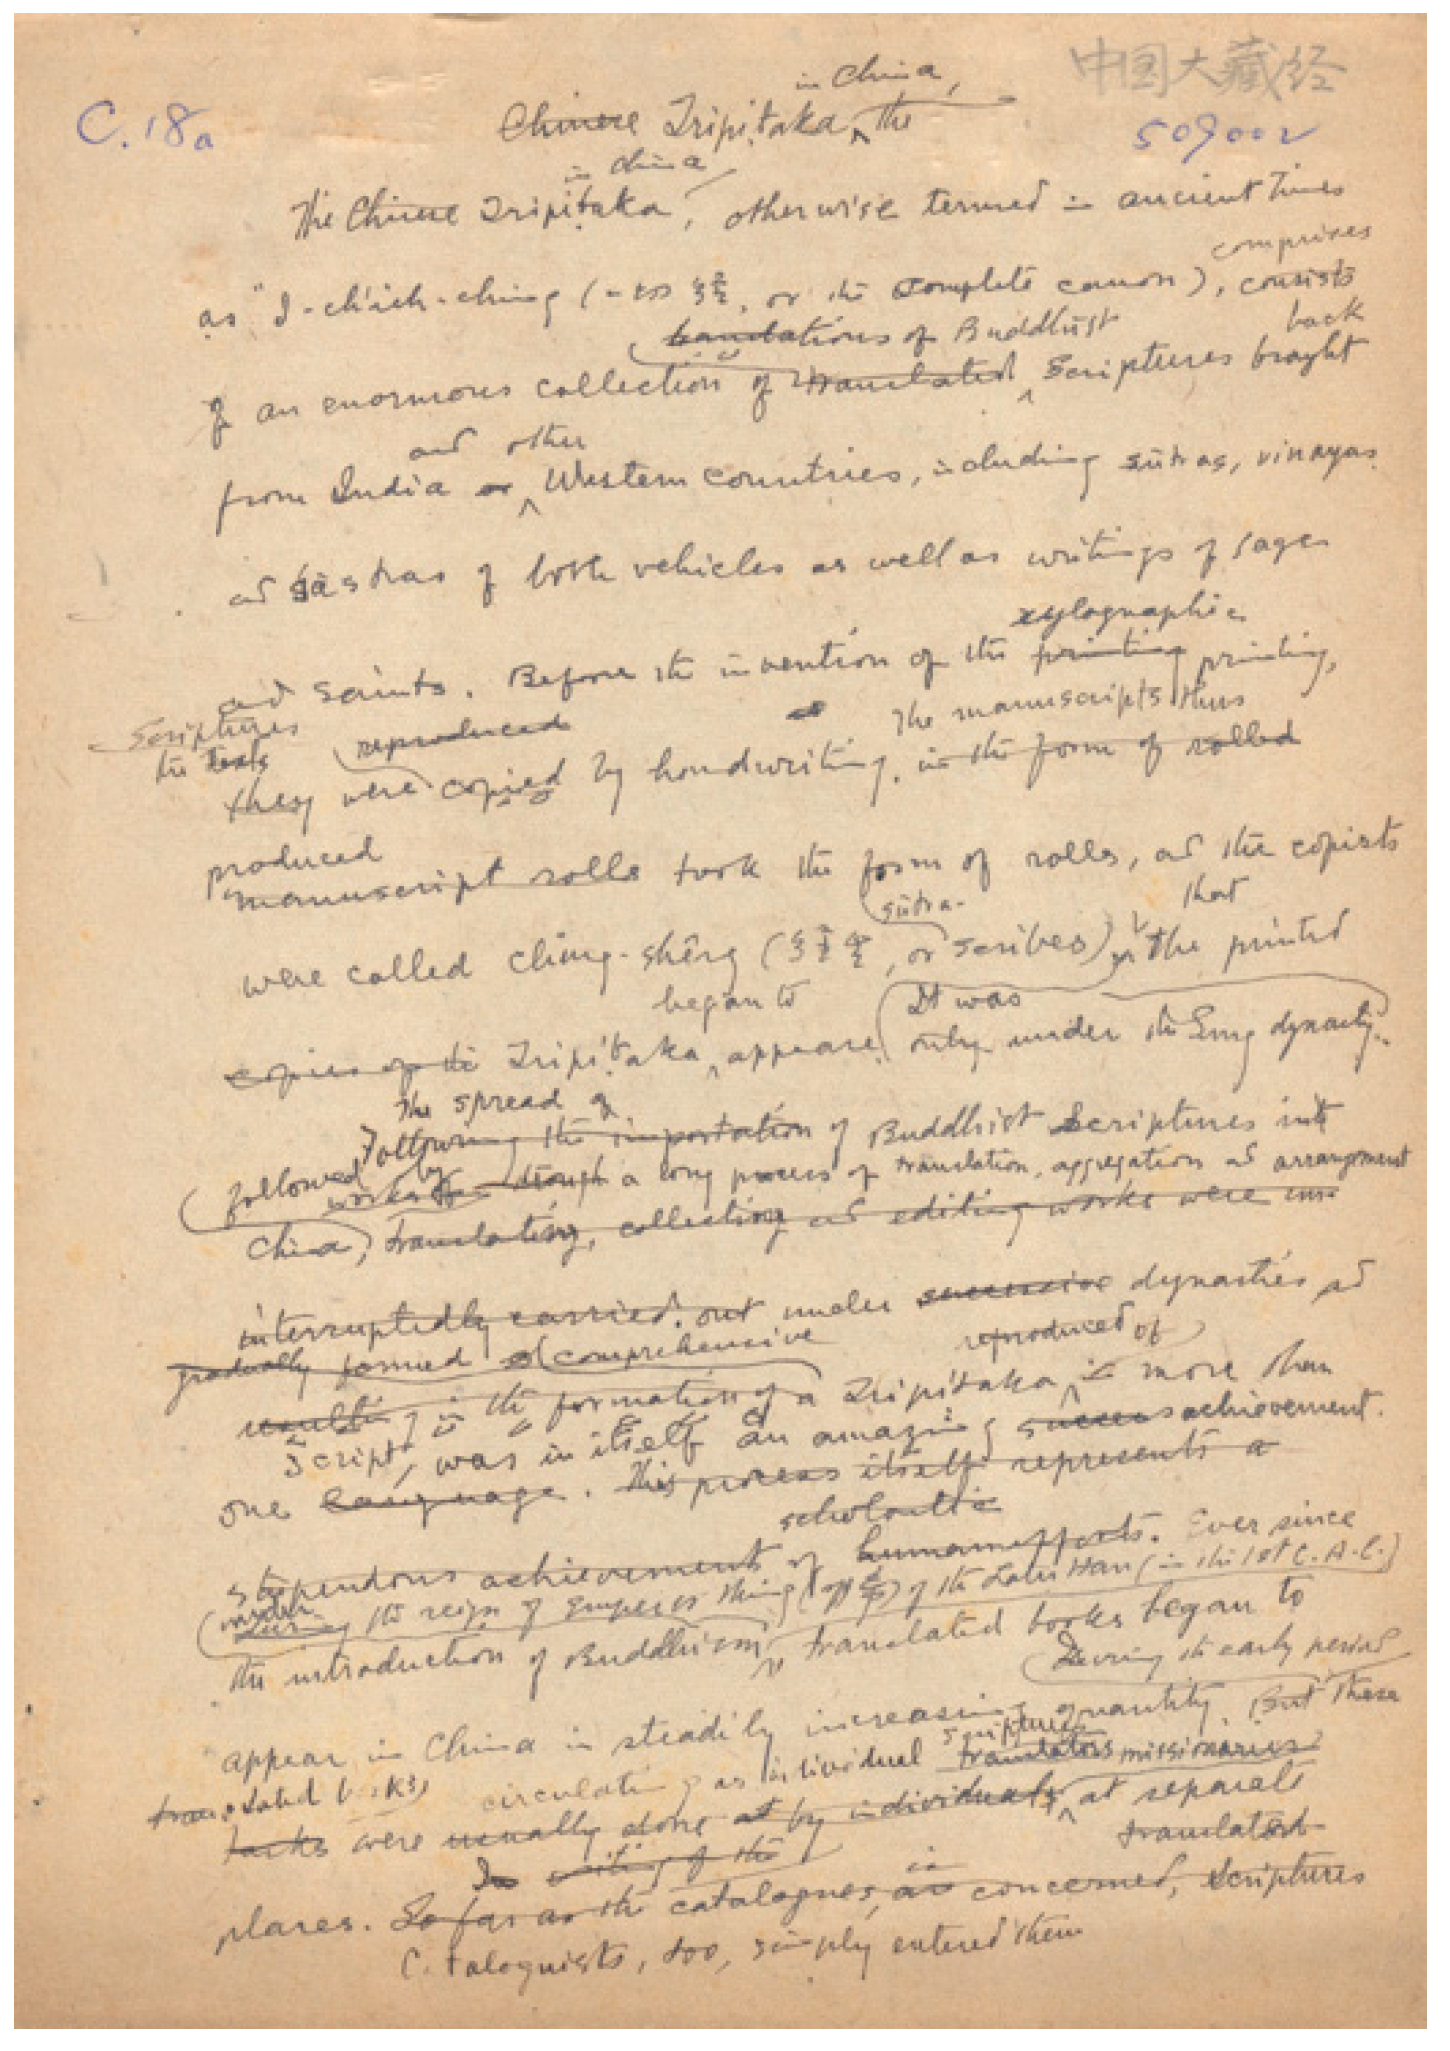 中国大藏经
in China,
C.18a
Chinese Tripiṭaka, the
509002
in China
The Chinese Tripiṭaka, otherwise termed in ancient times
comprises
as "I-ch'ieh-ching (一切経, or the complete canon), consists
translations of Buddhist
back
of an enormous collection of translated Scriptures brought
and other
from India or Western countries, including sūtras, vinayas
and śāstras of both vehicles as well as writings of sages
xylographic
and saints. Before the invention of the printing printing,
Scriptures
the texts
reproduced
The manuscripts thus
they were copied by handwriting, in the form of rolled
produced
manuscript rolls took the form of rolls, and the copists
sūtra-
that
were called ching-shêng (経生, or scribes) the printed
began to
It was
copies of the Tripiṭaka appeare only under the Sung dynasty.
The spread of
Following the importation of Buddhist Scriptures into
followed by a long process of translation, aggregation and arrangement
works through
China, translating, collecting and editing works were un-
interruptedly carried out under successive dynasties and
gradually formed comprehensive
reproduced of
resulting in the formation of a Tripiṭaka in more than
script, was in itself an amazing success achievement.
one language. This process itself represents a
scholastic
stupendous achievement of human efforts. Ever since
during the reign of Emperor Ming of the Later Han (in the 1st C. A.C.)
the introduction of Buddhism, translated books began to
During the early period
appear in China in steadily increasing quantity. But these
translated books circulating as individual scriptures
translators missionaries
tasks were usually done at by individuals, at separate
translated
In writing of the
places. So far as the catalogues, are concerned, Scriptures
Cataloguists, too, simply entered them